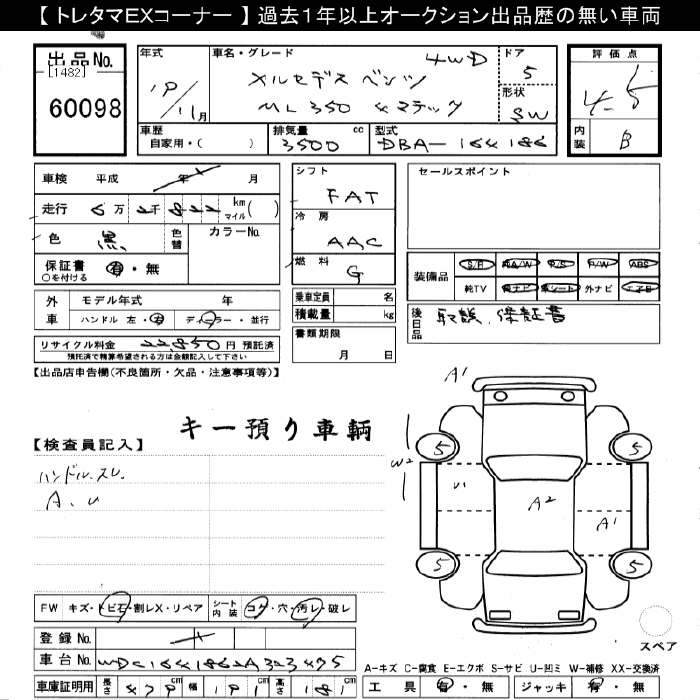 【 トレタマEXコーナー 】過去1年以上オークション出品歴の無い車両
出品No.
[1482]
60098
年式
19/11月
車名・グレード
4WD
メルセデス ベンツ
ML350 4マチック
ドア
5
形状
SW
評価点
4.5
内装
B
車歴
自家用・( )
排気量 cc
3500
型式
DBA-164186
車検 平成 年 月
走行 6万2千822 km マイル( )
色 黒 色替
カラーNo.
保証書 有・無
○を付ける
外車
モデル年式 年
ハンドル 左・右 ディーラー・並行
リサイクル料金 22850円 預託済
預託済で精算希望される方は金額記入して下さい
シフト
FAT
冷房
AAC
燃料
G
乗車定員 名
積載量 kg
書類期限
月 日
セールスポイント
装備品
S/R 純A/W P/S P/W ABS
純TV 純ナビ 革シート 外ナビ エアB
後日品
取説、保証書
【出品店申告欄(不良箇所・欠品・注意事項等)】
キー預り車輌
【検査員記入】
ハンドルスレ
A、U
A1
W2
5
5
U1
A2
A1
5
5
スペア
FW キズ・トビ石・割レX・リペア
シート内装 コゲ・穴・汚レ・破レ
登録No.
車台No. WDC1641862A323475
車庫証明用 長さ 479 cm 幅 191 cm 高さ 181 cm
A-キズ C-腐食 E-エクボ S-サビ U-凹ミ W-補修 XX-交換済
工具 有・無 ジャッキ 有・無